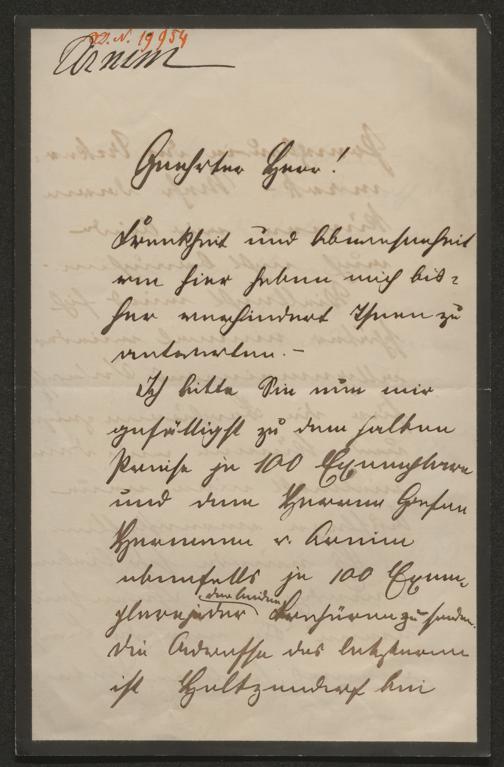 I.N. 19954
Arnim
Geehrter Herr!
Krankheit und Abwesenheit
von hier haben mich bis-
her verhindert Ihnen zu
antworten. –
Ich bitte Sie nun mir
gefälligst zu dem halben
Preise je 100 Exemplare
und dem Herrn Grafen
Hermann v. Arnim
ebenfalls je 100 Exem-
plare jeder der beiden Broschüren zu senden.
Die Adresse des letzteren
ist Holtzendorf bei